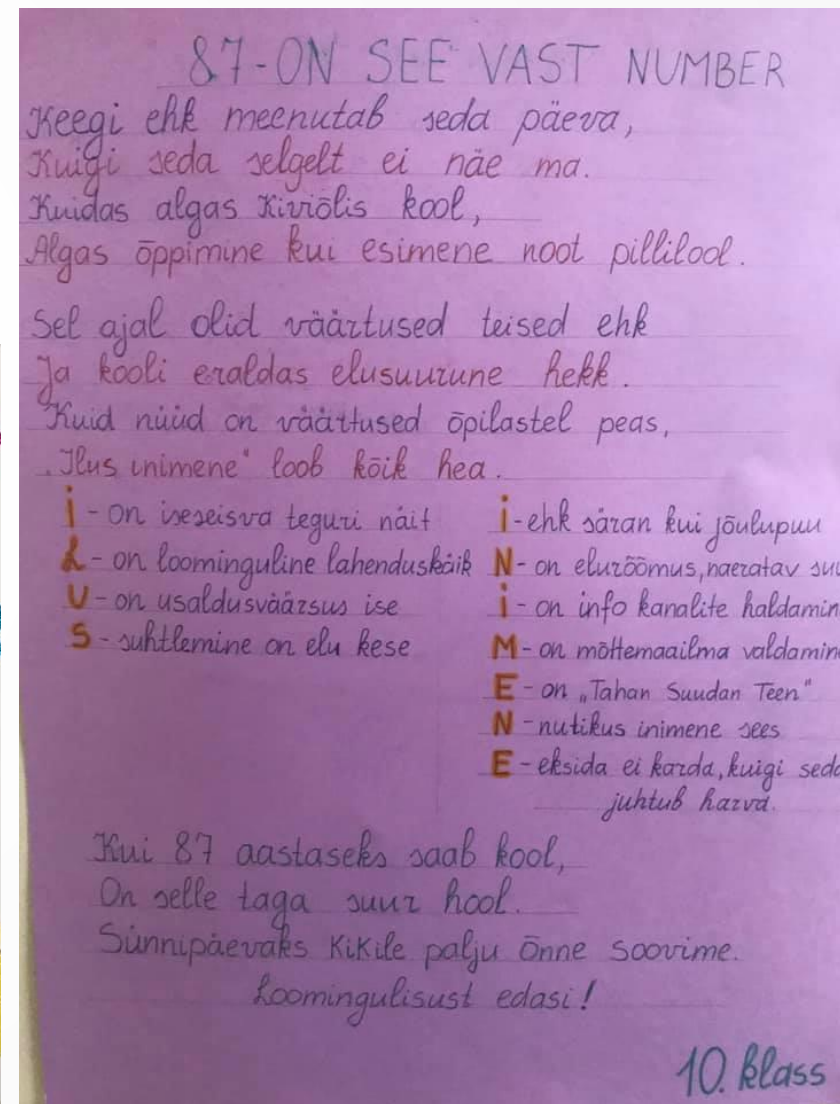 87-ON SEE VAST NUMBER
Keegi ehk meenutab seda päeva,
Kuigi seda selgelt ei näe ma.
Kuidas algas Kiviõlis kool,
Algas õppimine kui esimene noot pillilool.
Sel ajal olid väärtused teised ehk
Ja kooli eraldas elusuurune hekk.
Kuid nüüd on väättused õpilastel peas,
„Ilus inimene" loob kõik hea.
I - on iseseisva teguri näit
L - on loominguline lahenduskäik
U - on usaldusväärsus ise
S - suhtlemine on elu kese
I - ehk säran kui jõulupuu
N - on elurõõmus, naeratav suu
I - on info kanalite haldamin
M - on mõttemaailma valdamine
E - on „Tahan Suudan Teen"
N - nutikus inimene sees
E - eksida ei karda, kuigi seda
juhtub harva.
Kui 87 aastaseks saab kool,
On selle taga suur hool.
Sünnipäevaks KiKile palju õnne soovime.
Loomingulisust edasi!
10. klass